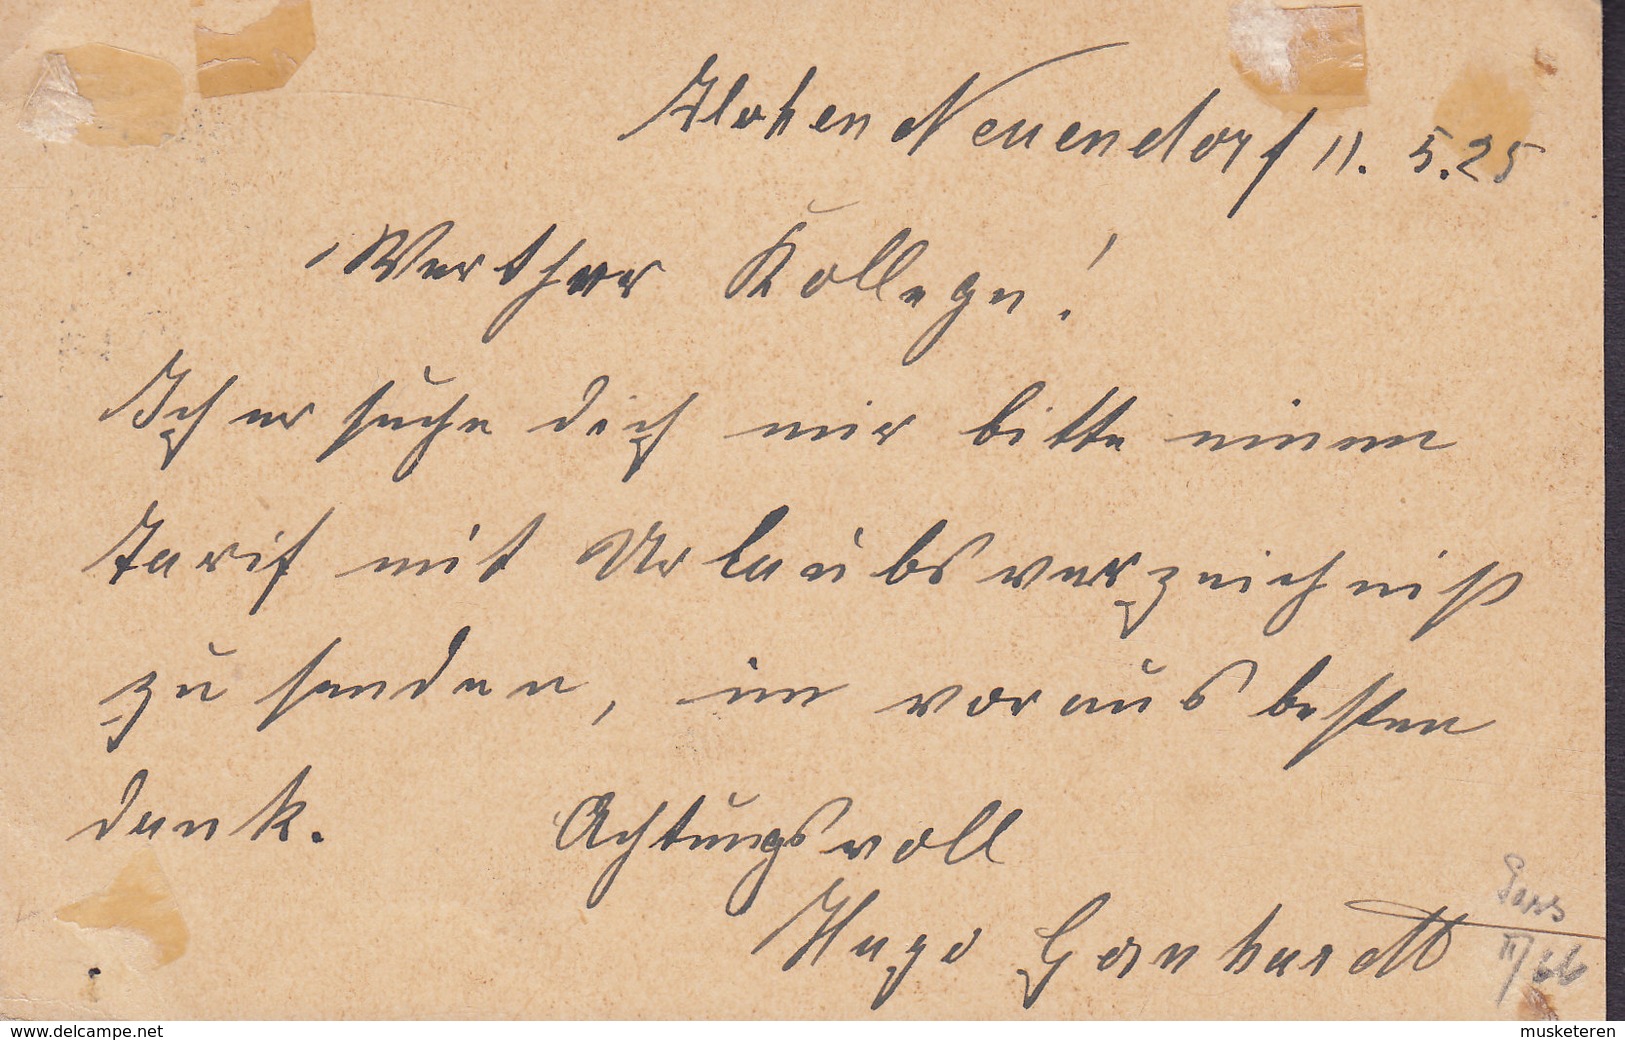 Hohen Neuendorf 11. 5. 25
Werther Kollege!
Ich ersuche dich mir bitte einen
Tarif mit Urlaubsverzeichniß
zu senden, im voraus besten
dank. Achtungsvoll
Hugo
II/66
www.delcampe.net
musketeren